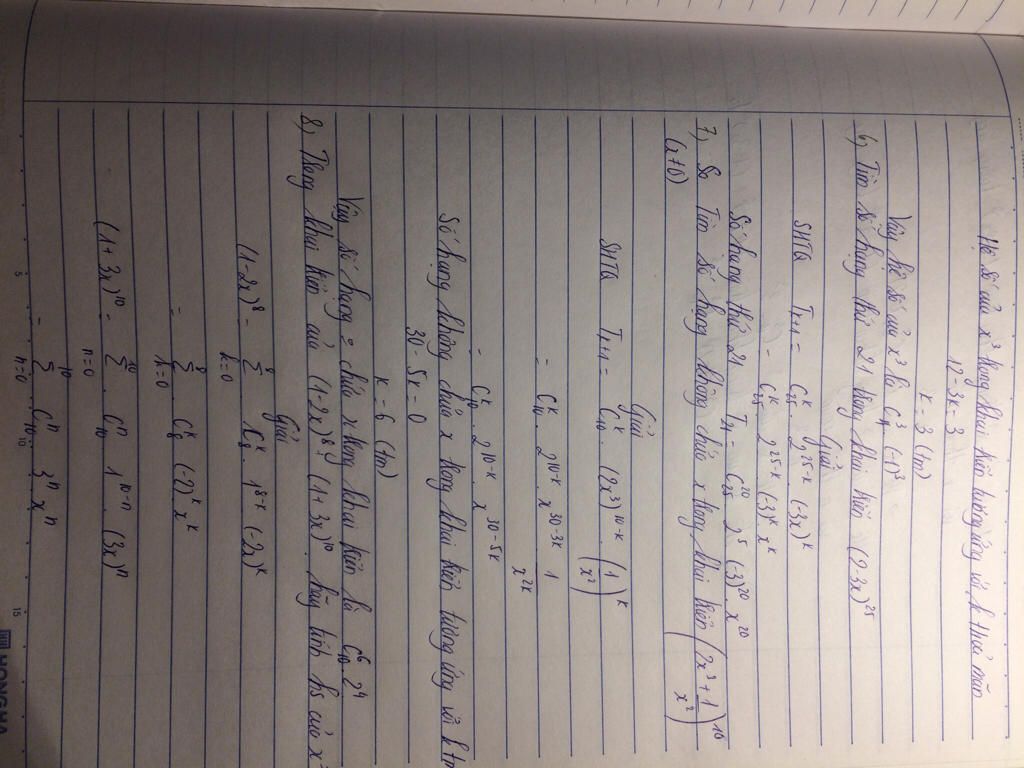 Hệ số của x³ trong khai triển tương ứng với k thoả mãn
12-3k = 3
k = 3 (tm)
Vậy hệ số của x³ là (-1)³
6, Tìm số hạng thứ 21 trong khai triển (2-3x)²⁵
Giải
SHTQ Tₖ₊₁ = C₂₅ᵏ . 2²⁵⁻ᵏ . (-3x)ᵏ
= C₂₅ᵏ . 2²⁵⁻ᵏ (-3)ᵏ xᵏ
Số hạng thứ 21 T₂₁ = C₂₅²⁰ 2⁵ (-3)²⁰ x²⁰
7, Tìm số hạng không chứa x trong khai triển (2x³ + 1/x²)¹⁰
(x≠0)
Giải
SHTQ Tₖ₊₁ = C₁₀ᵏ . (2x³)¹⁰⁻ᵏ . (1/x²)ᵏ
= C₁₀ᵏ . 2¹⁰⁻ᵏ . x³⁰⁻³ᵏ . 1/x²ᵏ
= C₁₀ᵏ . 2¹⁰⁻ᵏ . x³⁰⁻⁵ᵏ
Số hạng không chứa x trong khai triển tương ứng với k tm
30 - 5k = 0
k = 6 (tm)
Vậy số hạng chứa x trong khai triển là C₁₀⁶ . 2⁴
8, Trong khai triển của (1-2x)⁸ (1+3x)¹⁰ hãy tính hs của x
Giải
(1-2x)⁸ = Σ k=0 8 C₈ᵏ . 1⁸⁻ᵏ . (-2x)ᵏ
= Σ k=0 8 C₈ᵏ (-2)ᵏ xᵏ
(1+3x)¹⁰ = Σ n=0 10 C₁₀ⁿ . 1¹⁰⁻ⁿ . (3x)ⁿ
= Σ n=0 10 C₁₀ⁿ . 3ⁿ xⁿ
5 10 15